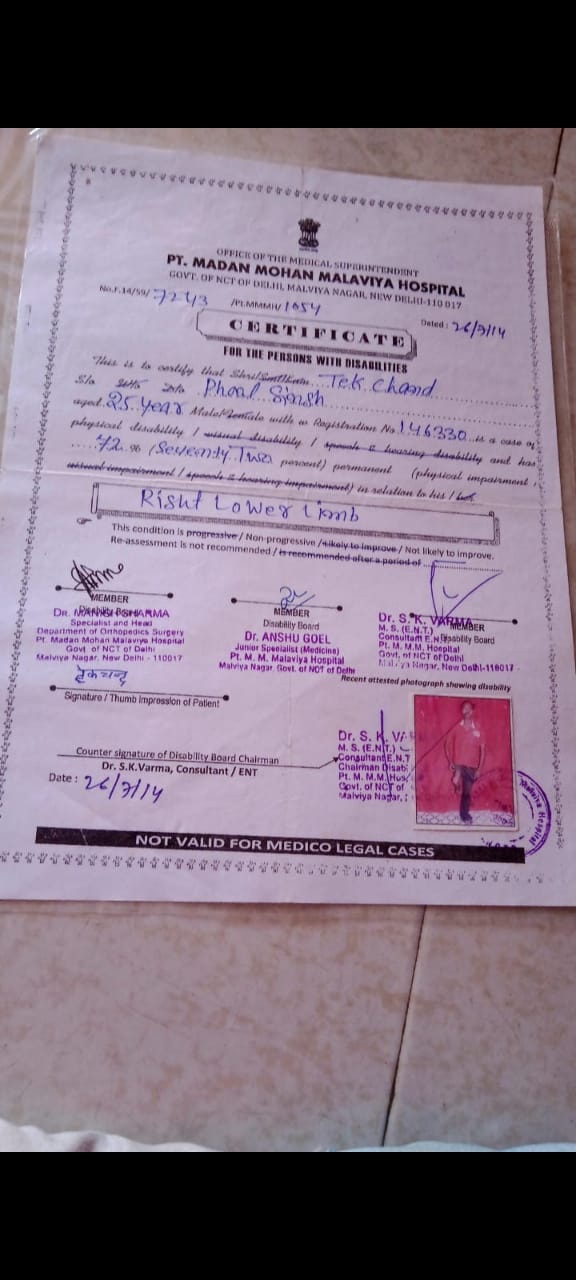 OFFICE OF THE MEDICAL SUPERINTENDENT
PT. MADAN MOHAN MALAVIYA HOSPITAL
GOVT. OF NCT OF DELHI, MALVIYA NAGAR, NEW DELHI-110 017
No.F.14/59/ 7243 /Pt.MMMH/ 1054
Dated : 26/7/14
CERTIFICATE
FOR THE PERSONS WITH DISABILITIES
This is to certify that Shri/Smt/Km Tek Chand
S/o W/o D/o Phool Singh
aged 25 year Male/Female with Registration No 146330 is a case of
physical disability / visual disability / speech & hearing disability and has
72 % (Seventy Two percent) permanent (physical impairment /
visual impairment / speech & hearing impairment) in relation to his / her
Right Lower Limb
This condition is progressive / Non-progressive / Likely to improve / Not likely to improve.
Re-assessment is not recommended / is recommended after a period of
MEMBER
Disability Board
DR. MANISH SHARMA
Specialist and Head
Department of Orthopedics Surgery
Pt. Madan Mohan Malaviya Hospital
Govt of NCT of Delhi
Malviya Nagar, New Delhi - 110017
MEMBER
Disability Board
Dr. ANSHU GOEL
Junior Specialist (Medicine)
Pt. M. M. Malaviya Hospital
Malviya Nagar, Govt. of NCT of Delhi
Dr. S. K. VARMA
MEMBER
M. S. (E.N.T.)
Consultant E.N.T
Disability Board
Pt. M. M. M. Hospital
Govt. of NCT of Delhi
Malviya Nagar, New Delhi-110017
टेकचन्द
Signature / Thumb Impression of Patient
Recent attested photograph showing disability
Dr. S. K. VAR
M. S. (E.N.T.)
Consultant E.N.T
Chairman Disab
Pt. M. M. M. Hos
Govt. of NCT of
Malviya Nagar,
Counter signature of Disability Board Chairman
Dr. S.K.Varma, Consultant / ENT
Date : 26/7/14
Malviya Hospital
NOT VALID FOR MEDICO LEGAL CASES